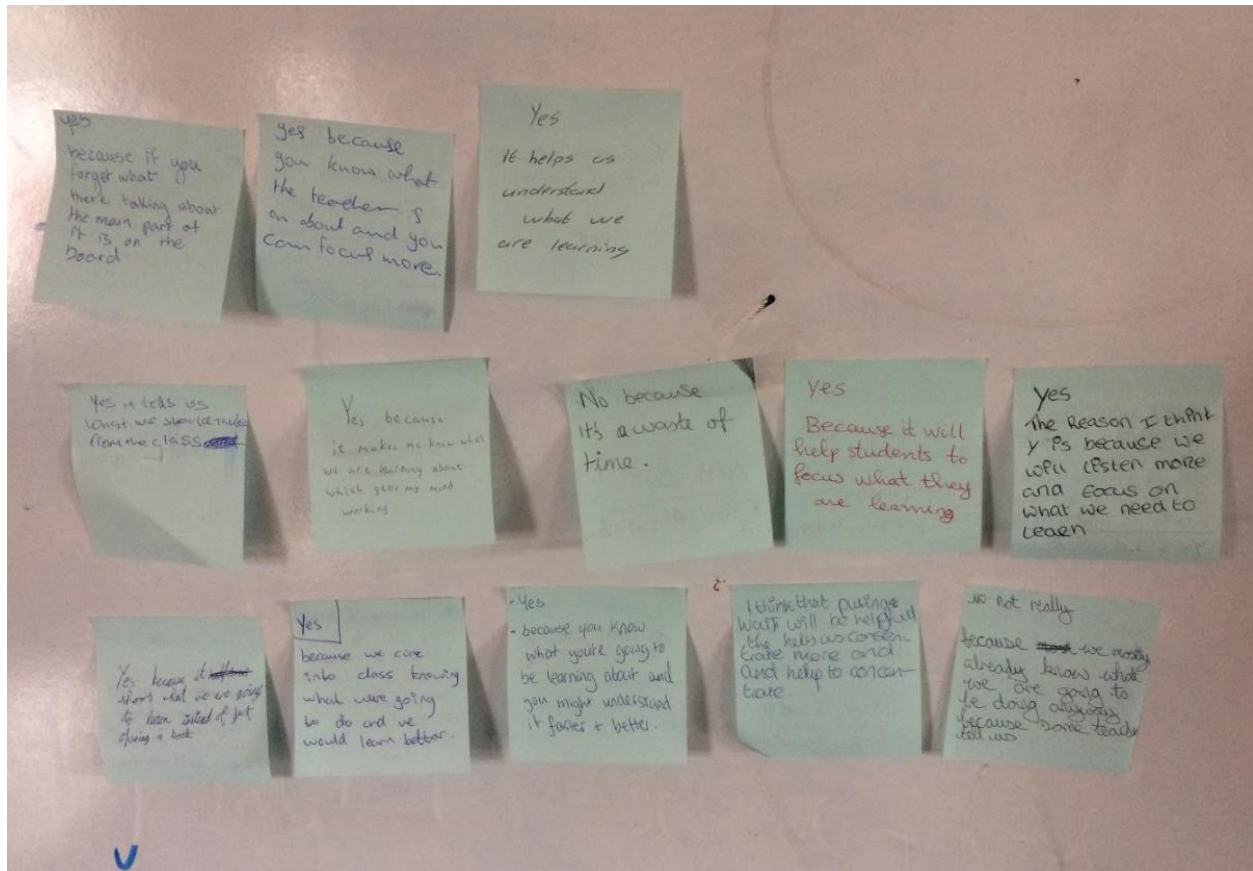 yes
because if you
forget what
there talking about
the main part of
it is on the
board
yes because
you know what
the teacher is
on about and you
can focus more.
Yes
it helps us
understand
what we
are learning
Yes it tells us
what we should
from the class
Yes because
it makes me know what
we are learning about
which gets my mind
working
No because
it's a waste of
time.
yes
Because it will
help students to
focus what they
are learning
yes
The Reason I think
y is because we
will listen more
and focus on
what we need to
learn
Yes because it
shows what we are going
to learn instead of just
a book
Yes
because we come
into class knowing
what were going
to do and we
would learn better.
- Yes
- because you know
what you're going to
be learning about and
you might understand
it faster + better.
I think that puting
WALT will be helpfull
the help us consen-
trate more and
and help to concen-
trate.
no not really
because we mostly
already know what
we are going to
be doing anyway
because some teacher
tell us